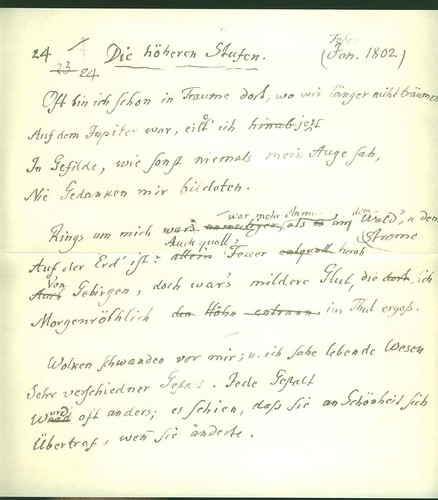 24 24 Die höheren Stufen. (Jan. 1802)
23 Febr.
Oft bin ich schon in Traume dort, wo wir länger nicht träumen
Auf dem Jupiter war, eilt' ich hinab jetzt
In Gefilde, wie sonst niemals mein Auge sah,
Nie Gedanken mir bildeten.
war mehr Anmut dem
Rings um mich war anmutiger als es am Wald', u dem Strome
Auch quoll
Auf der Erd' ist: allein Feuer entquoll herab
Von
Auch Gebirgen, doch war's mildere Glut, die dort sich
Morgenröthlich den Höhn entrann ins Thal ergoß.
Wolken schwanden vor mir; u. ich sahe lebende Wesen
Sehr verschiedner Gestalt. Jede Gestalt
Wurd' oft anders; es schien, daß sie an Schönheit sich
Übertraf, wen̄ sie änderte.